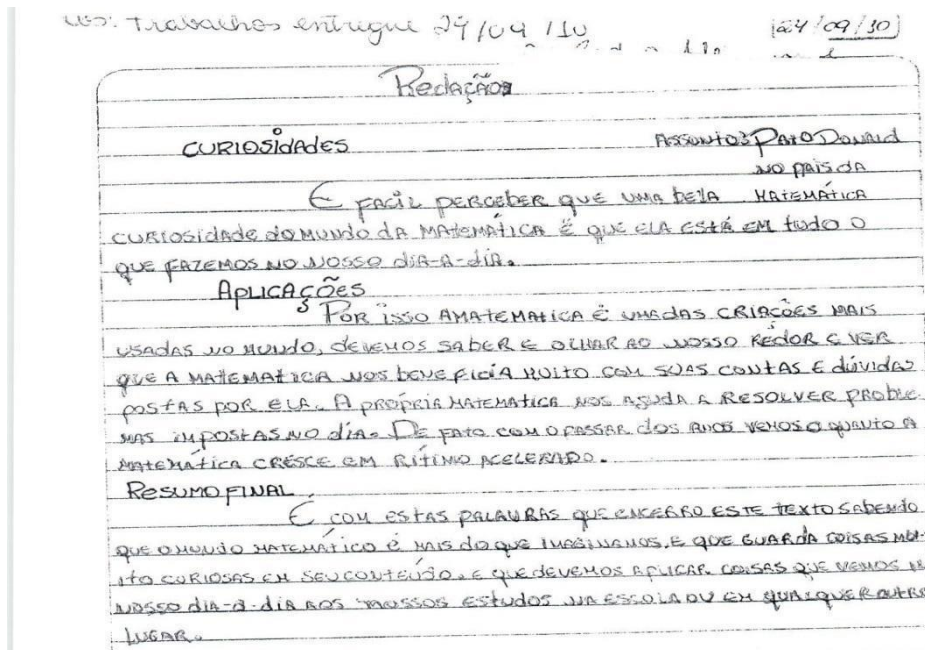 Trabalhos entregue 24/09/10 24/09/10
Redação
CURIOSIDADES ASSUNTO: PATO DONALD
NO PAIS DA
É FACIL PERCEBER QUE UMA BELA MATEMÁTICA
CURIOSIDADE DO MUNDO DA MATEMÁTICA É QUE ELA ESTÁ EM TUDO O
QUE FAZEMOS NO NOSSO DIA-A-DIA.
APLICAÇÕES
POR ISSO A MATEMATICA É UMA DAS CRIAÇÕES MAIS
USADAS NO MUNDO, DEVEMOS SABER E OLHAR AO NOSSO REDOR E VER
QUE A MATEMATICA NOS BENEFICIA MUITO COM SUAS CONTAS E DÚVIDAS
POSTAS POR ELA. A PRÓPRIA MATEMATICA NOS AJUDA A RESOLVER PROBLE-
MAS IMPOSTAS NO DIA. DE FATO COM O PASSAR DOS ANOS VEMOS O QUANTO A
MATEMÁTICA CRESCE EM RÍTIMO ACELERADO.
RESUMO FINAL
É COM ESTAS PALAVRAS QUE ENCERRO ESTE TEXTO SABENDO
QUE O MUNDO MATEMÁTICO É MAIS DO QUE IMAGINAMOS. E QUE GUARDA COISAS MU-
ITO CURIOSAS EM SEU CONTEÚDO. E QUE DEVEMOS APLICAR COISAS QUE VEMOS
NOSSO DIA-A-DIA AOS NOSSOS ESTUDOS NA ESCOLA OU EM QUALQUER OUTRO
LUGAR.